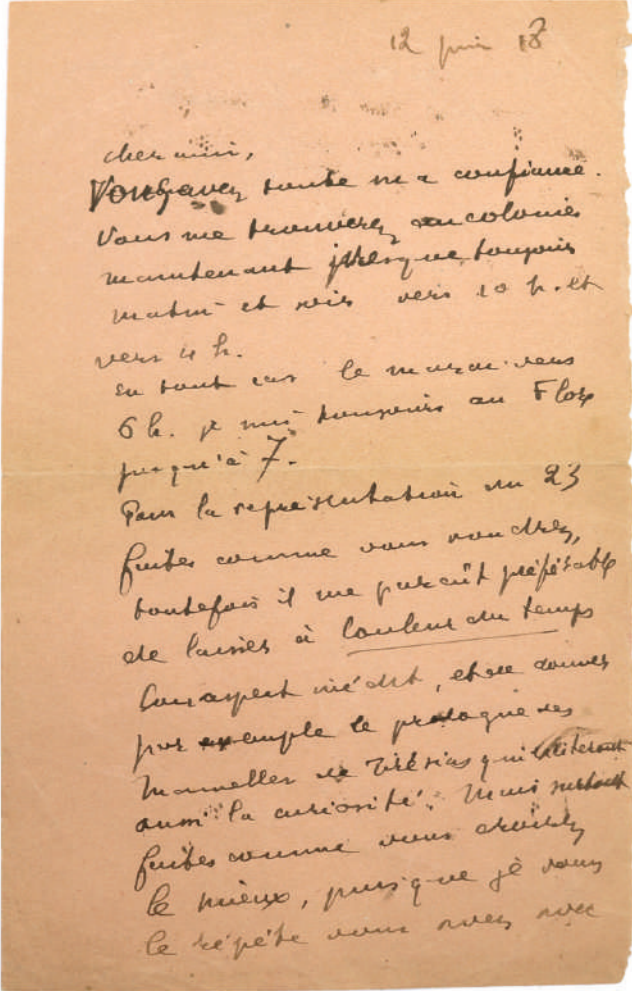 12 juin 18
cher ami,
Vous avez toute ma confiance.
Vous me trouverez aux colonies
maintenant presque toujours
matin et soir vers 10 h. et
vers 4 h.
En tout cas le mardi vers
6 h. je suis toujours au Flore
jusqu'à 7.
Pour la représentation du 23
faites comme vous voudrez,
toutefois il me paraît préférable
de laisser à Couleur du temps
son aspect inédit, et de donner
par exemple le prologue des
Mamelles de Tirésias qui exciteront
aussi la curiosité. Mais surtout
faites comme vous croirez
le mieux, puisque je vous
le répète vous avez avec